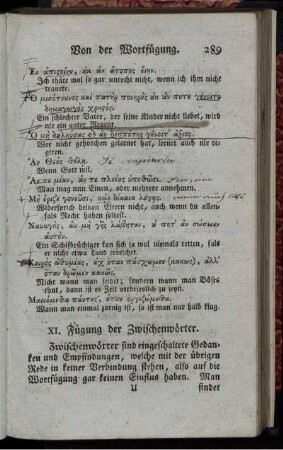 Von der Wortfügung. 289
Εἰ ἀπιςοίην, ἐκ ἂν ἄτοπος εἴην.
Ich thäte wol so gar unrecht nicht, wenn ich ihm nicht
trauete.
Ὁ μισότεκνος καὶ πατὴρ πονηρὸς ἐκ ἄν ποτε γένοιτο
δημαγωγὸς χρηςός.
Ein schlechter Vater, der seine Kinder nicht liebet, wird
nie ein guter Regent.
Ὁ μὴ δουλεύσας ἐδ᾽ ἂν δεσπότης γένοιτ᾽ ἄξιος.
Wer nicht gehorchen gelernet hat, lernet auch nie re-
giren.
Ἂν Θεὸς θέλῃ.
Wenn Gott will.
Ἄν τε μίαν, ἄν τε πλείες ὑποθῶσι.
Man mag nun Einen, oder mehrere annehmen.
Μὴ ἔριζε γονεῦσι, κἂν δίκαια λέγῃς.
Widersprich deinen Eltern nicht, auch wenn du allen-
falls Recht haben soltest.
Ναυαγὸς, ἂν μὴ γῆς λάβηται, ἐ ποτ᾽ ἂν σώσειεν
αὑτόν.
Ein Schiffbrüchiger kan sich ja wol niemals retten, falls
er nicht etwa Land erreichet.
Καιρὸς ἀθυμίας, ἐχ ὅταν πάσχωμεν (κακῶς), ἀλλ᾽
ὅταν δρῶμεν κακῶς.
Nicht wann man leidet; sondern wann man Böses
thut, dann ist es Zeit verdrieslich zu seyn.
Μαινόμεθα πάντες, ὅταν ὀργιζώμεθα.
Wann man einmal zornig ist, so ist man nur halb klug.
XI. Fügung der Zwischenwörter.
Zwischenwörter sind eingeschaltete Gedan-
ken und Empfindungen, welche mit der übrigen
Rede in keiner Verbindung stehen, also auf die
Wortfügung gar keinen Einflus haben. Man
U findet